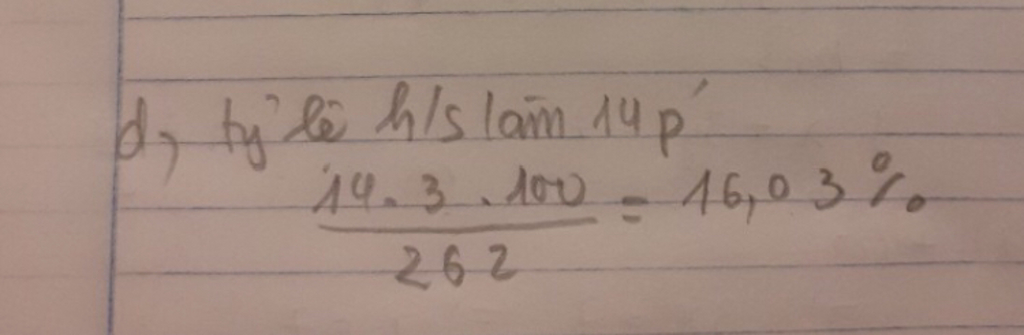 d, tỷ lệ h/s làm 14 p'
14 . 3 . 100
= 16,03 %
262